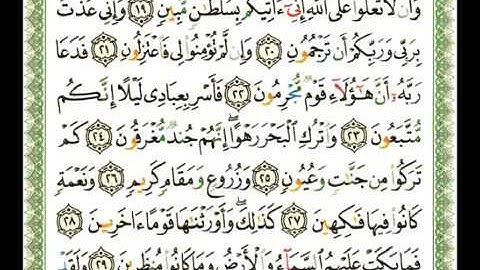 وَأَن لَّا تَعْلُوا۟ عَلَى ٱللَّهِ إِنِّىٓ ءَاتِيكُم بِسُلْطَٰنٍ مُّبِينٍ ١٩ وَإِنِّى عُذْتُ
بِرَبِّى وَرَبِّكُمْ أَن تَرْجُمُونِ ٢٠ وَإِن لَّمْ تُؤْمِنُوا۟ لِى فَٱعْتَزِلُونِ ٢١ فَدَعَا
رَبَّهُۥٓ أَنَّ هَٰٓؤُلَآءِ قَوْمٌ مُّجْرِمُونَ ٢٢ فَأَسْرِ بِعِبَادِى لَيْلًا إِنَّكُم
مُّتَّبَعُونَ ٢٣ وَٱتْرُكِ ٱلْبَحْرَ رَهْوًا ۖ إِنَّهُمْ جُندٌ مُّغْرَقُونَ ٢٤ كَمْ
تَرَكُوا۟ مِن جَنَّٰتٍ وَعُيُونٍ ٢٥ وَزُرُوعٍ وَمَقَامٍ كَرِيمٍ ٢٦ وَنَعْمَةٍ
كَانُوا۟ فِيهَا فَٰكِهِينَ ٢٧ كَذَٰلِكَ ۖ وَأَوْرَثْنَٰهَا قَوْمًا ءَاخَرِينَ ٢٨
فَمَا بَكَتْ عَلَيْهِمُ ٱلسَّمَآءُ وَٱلْأَرْضُ وَمَا كَانُوا۟ مُنظَرِينَ ٢٩ وَلَقَدْ